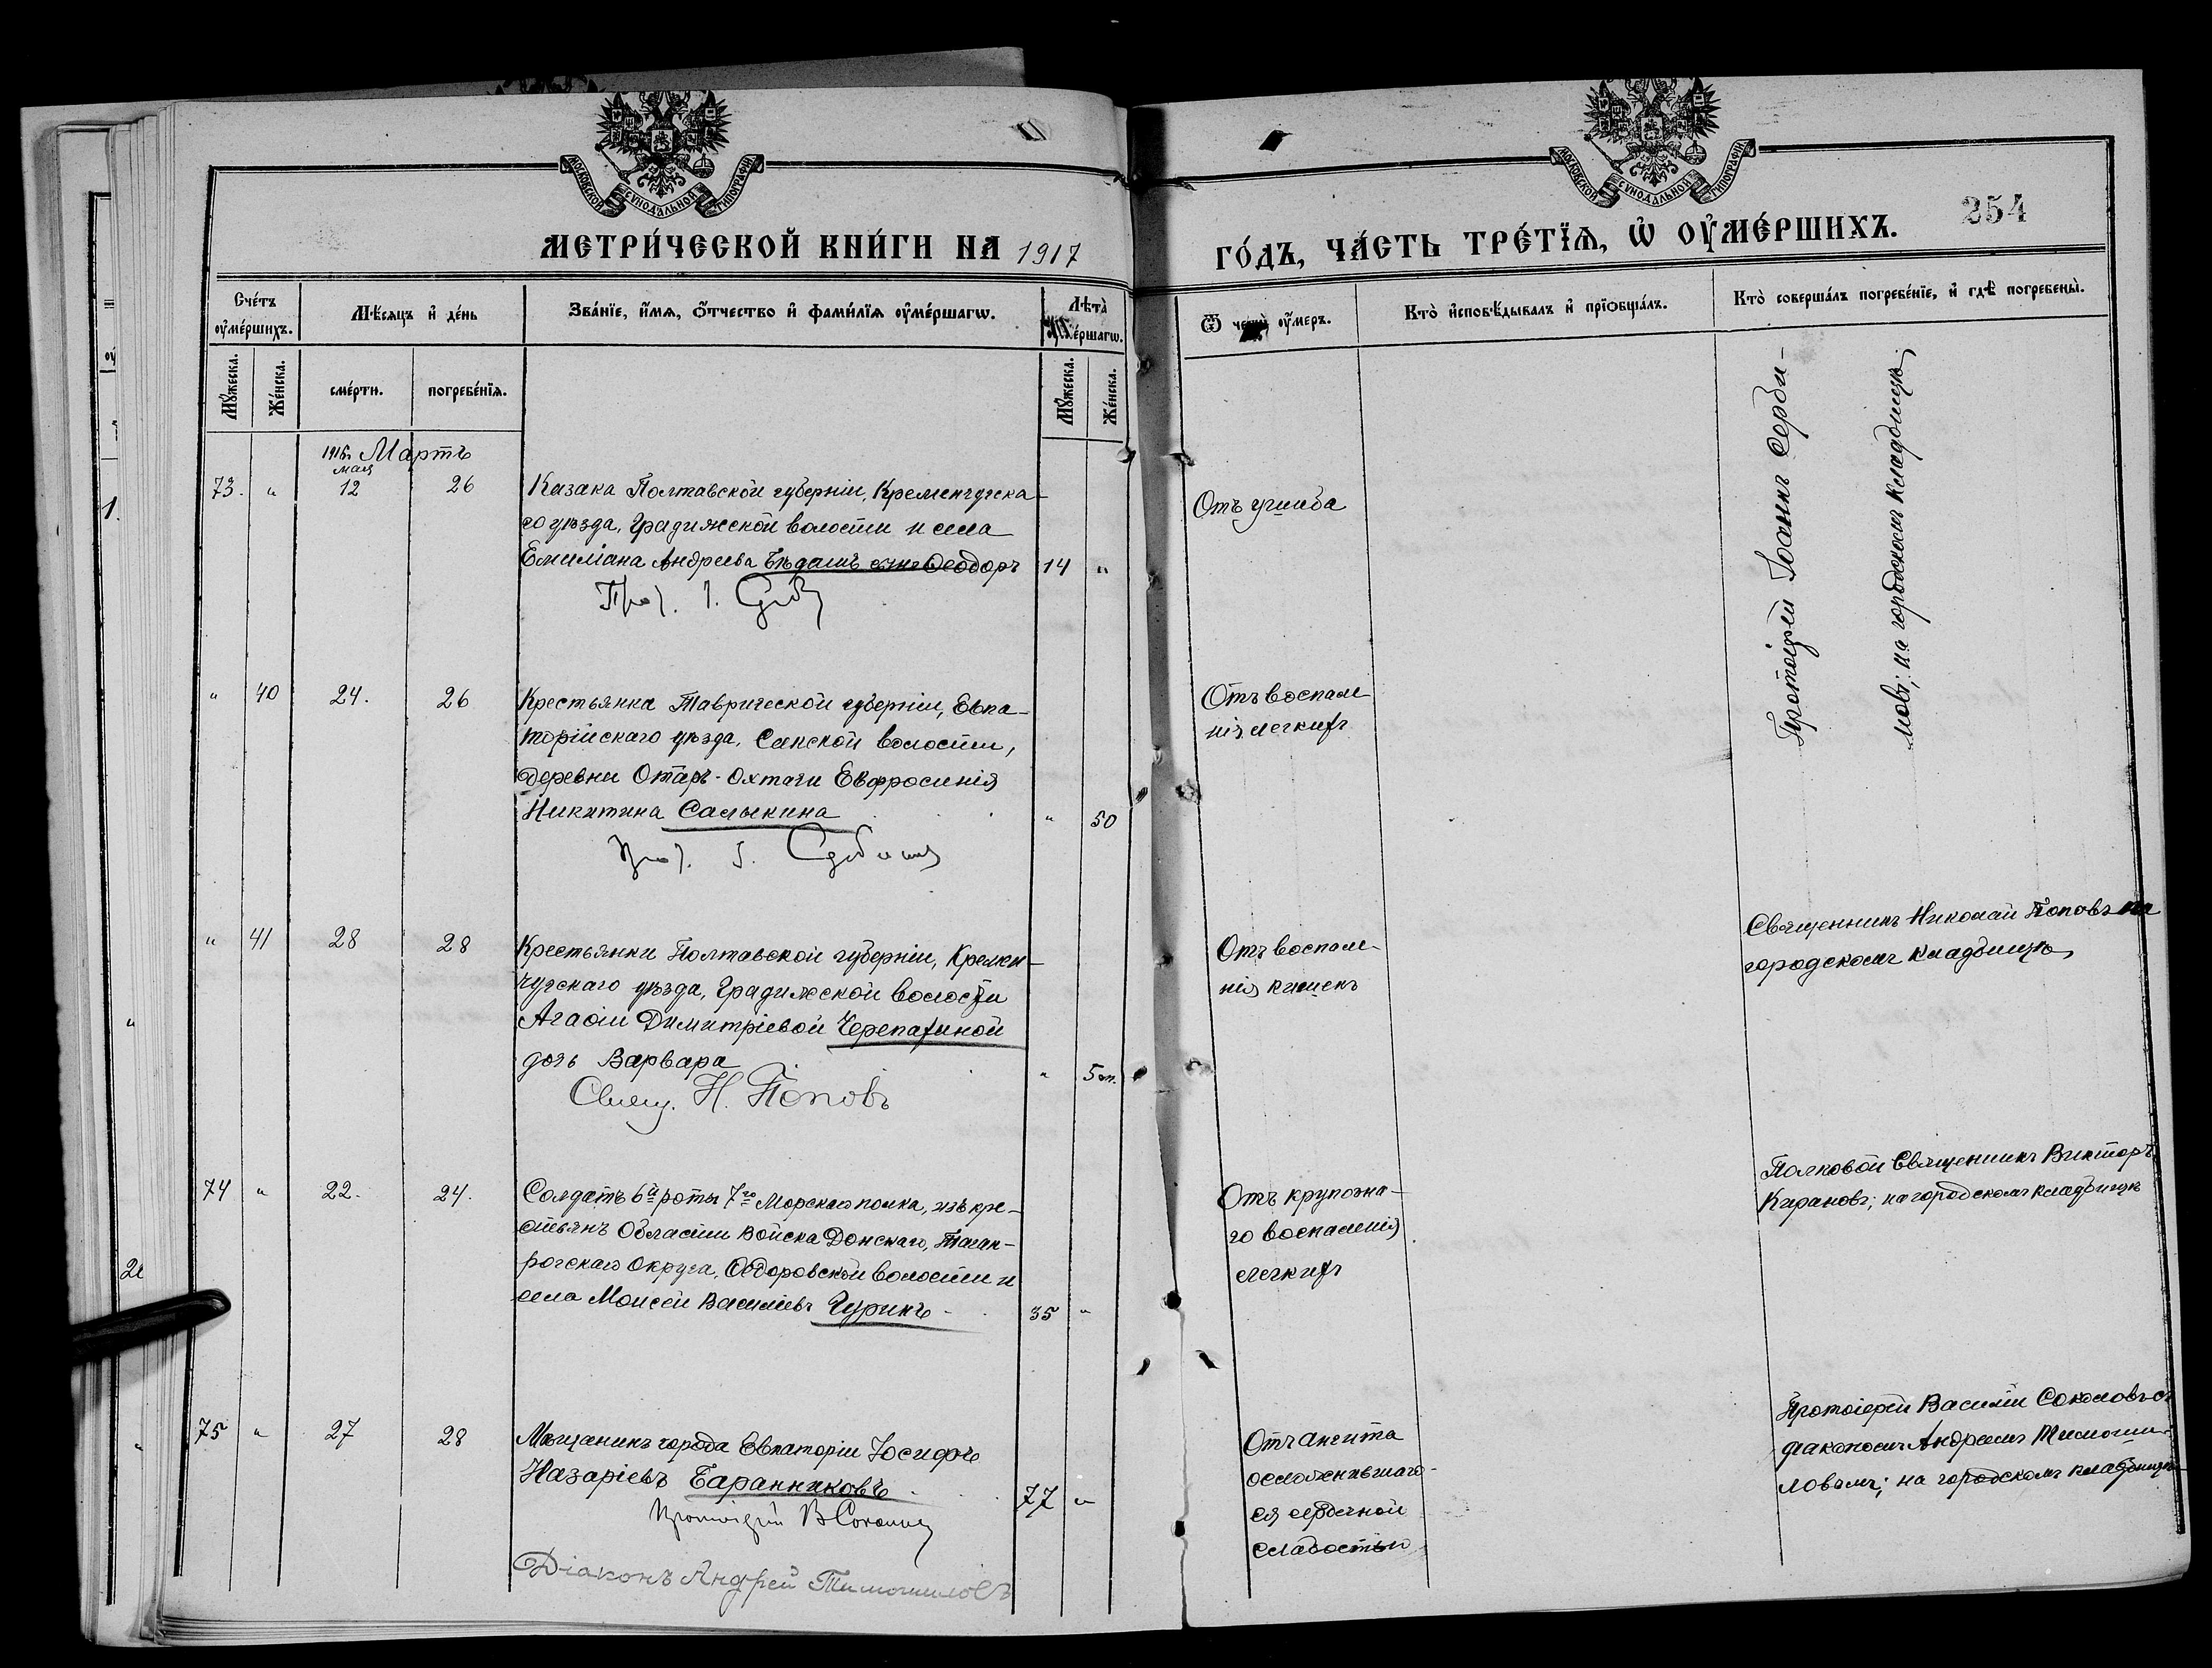 МОСКОВСКОЙ СУНОДАЛЬНОЙ ТИПОГРАФІИ
МОСКОВСКОЙ СУНОДАЛЬНОЙ ТИПОГРАФІИ
254
МЕТРИ́ЧЕСКОЙ КНИ́ГИ НА 1917
ГО́ДЪ, ЧА́СТЬ ТРЕ́ТЇѦ, Ѡ҆ ОУ҆МЕ́РШИХЪ.
Сче́тъ оу҆ме́ршихъ.
Мѣ́сяцъ и҆ де́нь
Зва́нїе, и҆́мя, ѻ҆́тчество и҆ фами́лїя оу҆ме́ршагѡ.
Лѣ́та оу҆ме́ршагѡ.
Ѿ чегѡ̀ оу҆́меръ.
Кто̀ и҆сповѣ́дывалъ и҆ прїѡбща́лъ.
Кто̀ соверша́лъ погребе́нїе, и҆ гдѣ̀ погребены̀.
Му́жеска.
Же́нска.
сме́рти.
погребе́нїя.
Му́жеска.
Же́нска.
1916г. Мартъ
мая
73. " 12 26
Казака Полтавской губерніи, Кременчугска-
го уѣзда, Градижской волости и села
Емиліана Андреева Бѣдашъ сынъ Ѳеодоръ 14 "
Прот. І.
Отъ ушиба
Протоіерей Іоаннъ Серби-
новъ; на городскомъ кладбищѣ
" 40 24. 26
Крестьянка Таврической губерніи, Евпа-
торійскаго уѣзда, Сакской волости,
деревни Отаръ-Охтачи Евфросинія
Никитина Салыкина " 50
Прот. І.
Отъ воспале
нія легкихъ
" 41 28 28
Крестьянки Полтавской губерніи, Кремен-
чугскаго уѣзда, Градижской волости
Агаѳіи Димитріевой Черепахиной
дочь Варвара " 5 м.
Свящ. Н. Поповъ
Отъ воспале-
нія кишекъ
Священникъ Николай Поповъ на
городскомъ кладбищѣ
74 " 22. 24.
Солдатъ 6й роты 7го Морскаго полка, изъ кре-
стьянъ Области Войска Донскаго, Таган-
рогскаго Округа, Ѳедоровской волости и
села Моисей Василіевъ Гуринъ 35 "
Отъ крупозна-
го воспаленія
легкихъ
Полковой Священникъ Викторъ
Карановъ; на городскомъ кладбищѣ
75 " 27 28
Мѣщанинъ города Евпаторіи Іосифъ
Назаріевъ Баранниковъ 77 "
Протоіерей В. Соколовъ
Діаконъ Андрей Тимошиловъ
Отъ
осложнившаго-
ся сердечной
слабостью
Протоіерей Василій Соколовъ съ
діакономъ Андреемъ Тимоши-
ловымъ; на городскомъ кладбищѣ